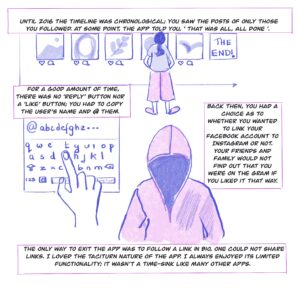 UNTIL 2016 THE TIMELINE WAS CHRONOLOGICAL; YOU SAW THE POSTS OF ONLY THOSE
YOU FOLLOWED. AT SOME POINT, THE APP TOLD YOU, ' THAT WAS ALL, ALL DONE '.
THE
END!
FOR A GOOD AMOUNT OF TIME,
THERE WAS NO 'REPLY' BUTTON NOR
A 'LIKE' BUTTON; YOU HAD TO COPY
THE USER'S NAME AND @ THEM.
@abcdecfghz---
q w e t y u i o p
a s d h j k l
z x c b n m
BACK THEN, YOU HAD A
CHOICE AS TO
WHETHER YOU WANTED
TO LINK YOUR
FACEBOOK ACCOUNT TO
INSTAGRAM OR NOT.
YOUR FRIENDS AND
FAMILY WOULD NOT
FIND OUT THAT YOU
WERE ON THE GRAM IF
YOU LIKED IT THAT WAY.
THE ONLY WAY TO EXIT THE APP WAS TO FOLLOW A LINK IN BIO. ONE COULD NOT SHARE
LINKS. I LOVED THE TACITURN NATURE OF THE APP. I ALWAYS ENJOYED ITS LIMITED
FUNCTIONALITY; IT WASN'T A TIME-SINK LIKE MANY OTHER APPS.